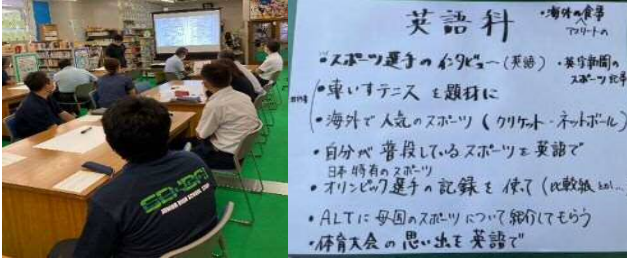 SENDAI
JUNIOR HIGH SCHOOL
英語科
・海外の食事
アスリートの
・スポーツ選手のインタビュー(英語)
・英字新聞の
スポーツ記事
教科書
・車いすテニスを題材に
・海外で人気のスポーツ(クリケット・ネットボール)
・自分が普段しているスポーツを英語で
日本特有のスポーツ
・オリンピック選手の記録を使って(比較級
・ALTに母国のスポーツについて紹介してもらう
・体育大会の思い出を英語で